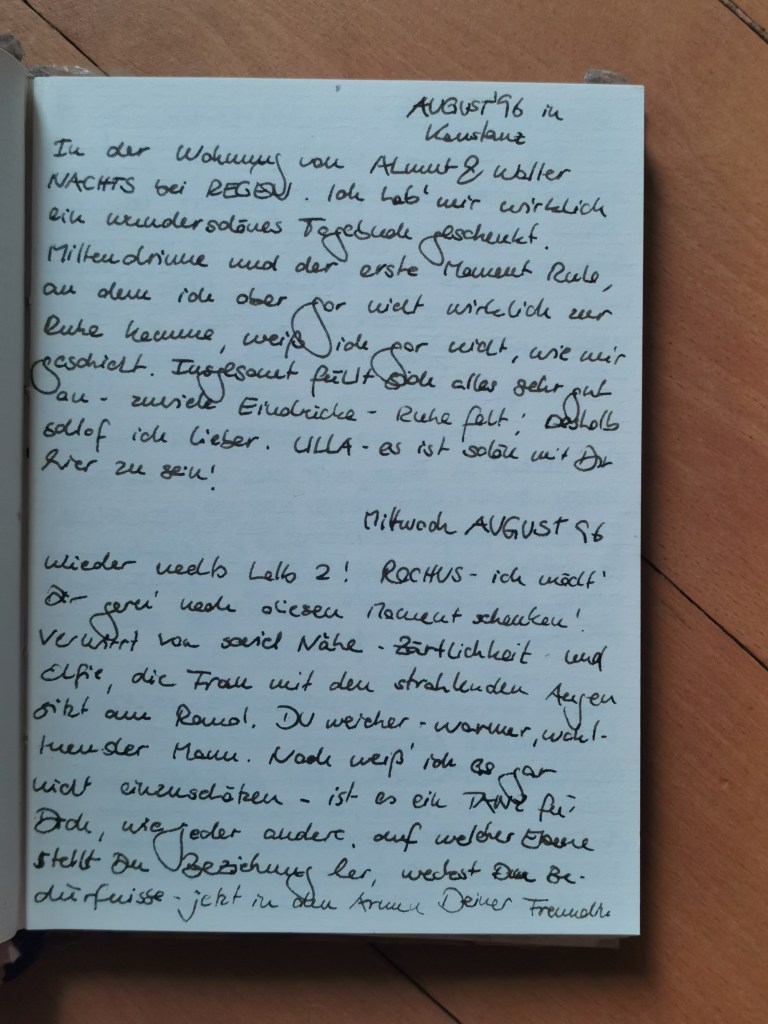 AUGUST '96 in
Konstanz
In der Wohnung von Almut & Walter
NACHTS bei REGEN. Ich hab' mir wirklich
ein wunderschönes Tagebuch geschenkt.
Mittendrinne und der erste Moment Ruhe,
an dem ich aber gar nicht wirklich zur
Ruhe komme, weiß ich gar nicht, wie mir
geschieht. Insgesamt fühlt sich alles sehr gut
an - zuviele Eindrücke - Ruhe fehlt! Deshalb
schlaf ich lieber. ULLA - es ist schön mit Dir
hier zu sein!
Mittwoch AUGUST 96
wieder nachts halb 2! ROCHUS - ich möcht'
Dir gern' noch diesen Moment schenken!
Verwirrt von soviel Nähe - Zärtlichkeit und
Elfie, die Frau mit den strahlenden Augen
sitzt am Rand. DU weicher - warmer,
Mann. Noch weiß' ich es gar
nicht einzuschätzen - ist es ein TANZ für
Dich, wie jeder andere, auf welcher Ebene
stellst Du Beziehung her, weckst Du Be-
dürfnisse - jetzt in den Armen Deiner Freundin